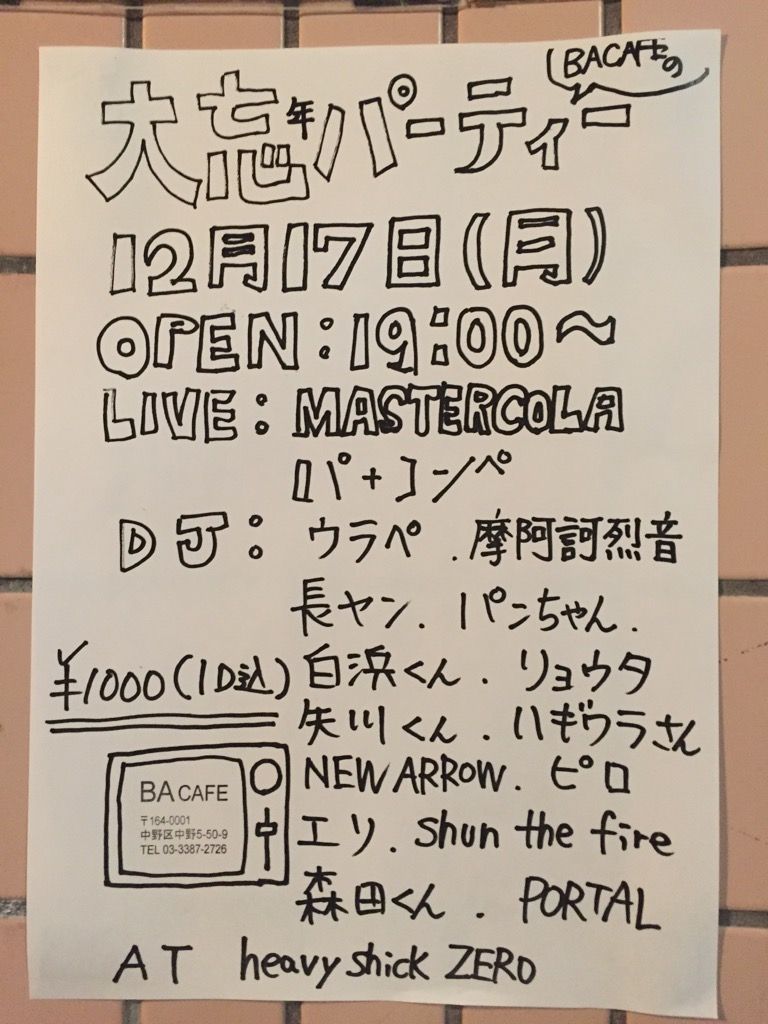 BACAFEの
大忘年パーティー
12月17日(月)
OPEN:19:00〜
LIVE: MASTERCOLA
パ+コンペ
DJ: ウラペ.摩阿訶烈音
長ヤン.パンちゃん.
¥1000(1D込)
白浜くん.リョウタ
矢川くん.ハギウラさん
NEW ARROW.ピロ
エリ.shun the fire
森田くん.PORTAL
BA CAFE
〒164-0001
中野区中野5-50-9
TEL 03-3387-2726
AT heavy shick ZERO